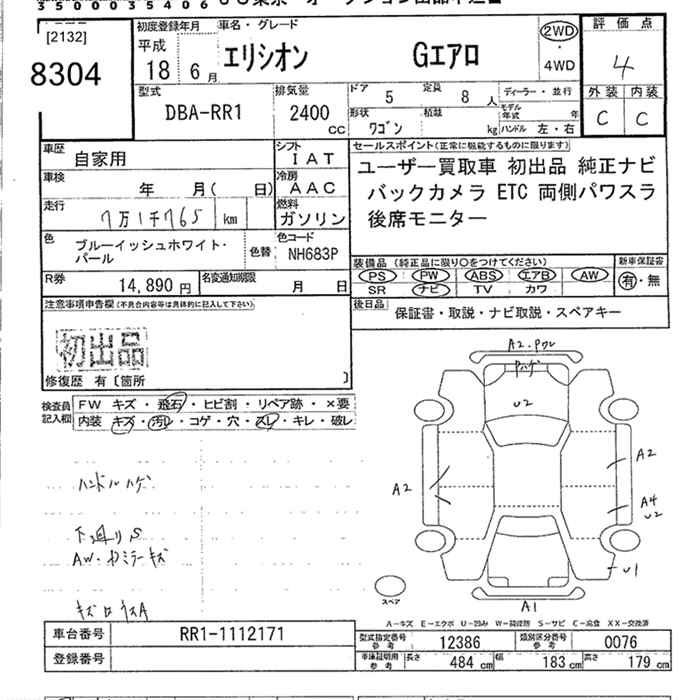 350003540６
[2132]
8304
初度登録年月
平成
18 6月
車名・グレード
エリシオン Gエアロ
2WD
・
4WD
評価点
4
外装 内装
C C
型式
DBA-RR1
排気量
2400
CC
ドア
5
定員
8人
形状
ワゴン
積載
kg
ディーラー・並行
モデル年式 年
ハンドル 左・右
車歴
自家用
シフト
IAT
車検
年 月( 日)
冷房
AAC
走行
7万1千765 km
燃料
ガソリン
色
ブルーイッシュホワイト・
パール
色替
色コード
NH683P
R券
14,890円
名変通知期限
月 日
セールスポイント(正常に機能するものに限ります)
ユーザー買取車 初出品 純正ナビ
バックカメラ ETC 両側パワスラ
後席モニター
装備品 (純正品に限り○をつけてください)
PS PW ABS エアB AW
SR ナビ TV カワ
新車保証書
有・無
後日品
保証書・取説・ナビ取説・スペアキー
注意事項申告欄(不具合内容等は具体的に記入して下さい)
初出品
修復歴 有〔箇所 〕
検査員
記入欄
FW キズ・飛石・ヒビ割・リペア跡・×要
内装 キズ・汚レ・コゲ・穴・スレ・キレ・破レ
ハンドルハゲ
下廻りS
AW・カミラーキズ
A2・Pワレ
U2
A2
A2
A4
U2
U1
スペア
A1
A-キズ E-エクボ U-凹み W-補修跡 S-サビ C-腐食 XX-交換済
車台番号 RR1-1112171
登録番号
型式指定番号
参考
12386
類別区分番号
参考
0076
車庫証明用
参考
長さ 484cm 幅 183cm 高さ 179cm